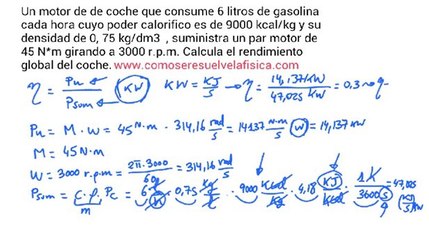 Un motor de de coche que consume 6 litros de gasolina
cada hora cuyo poder calorifico es de 9000 kcal/kg y su
densidad de 0, 75 kg/dm3 , suministra un par motor de
45 N*m girando a 3000 r.p.m. Calcula el rendimiento
global del coche. www.comoseresuelvelafisica.com
η = Pu / Psum (KW) KW = KJ/s → η = 14,137 KW / 47,025 KW = 0,3 →
Pu = M · w = 45 N·m · 314,16 rad/s = 14137 N·m/s (W) = 14,137 KW
M = 45 N·m
W = 3000 r.p.m = 2π·3000 / 60 = 314,16 rad/s
Psum = c.g. Pc = 6 · 0,75 kg · 9000 Kcal/kg · 4,18 KJ/Kcal · 1h/3600s = 47,025
m KJ/s